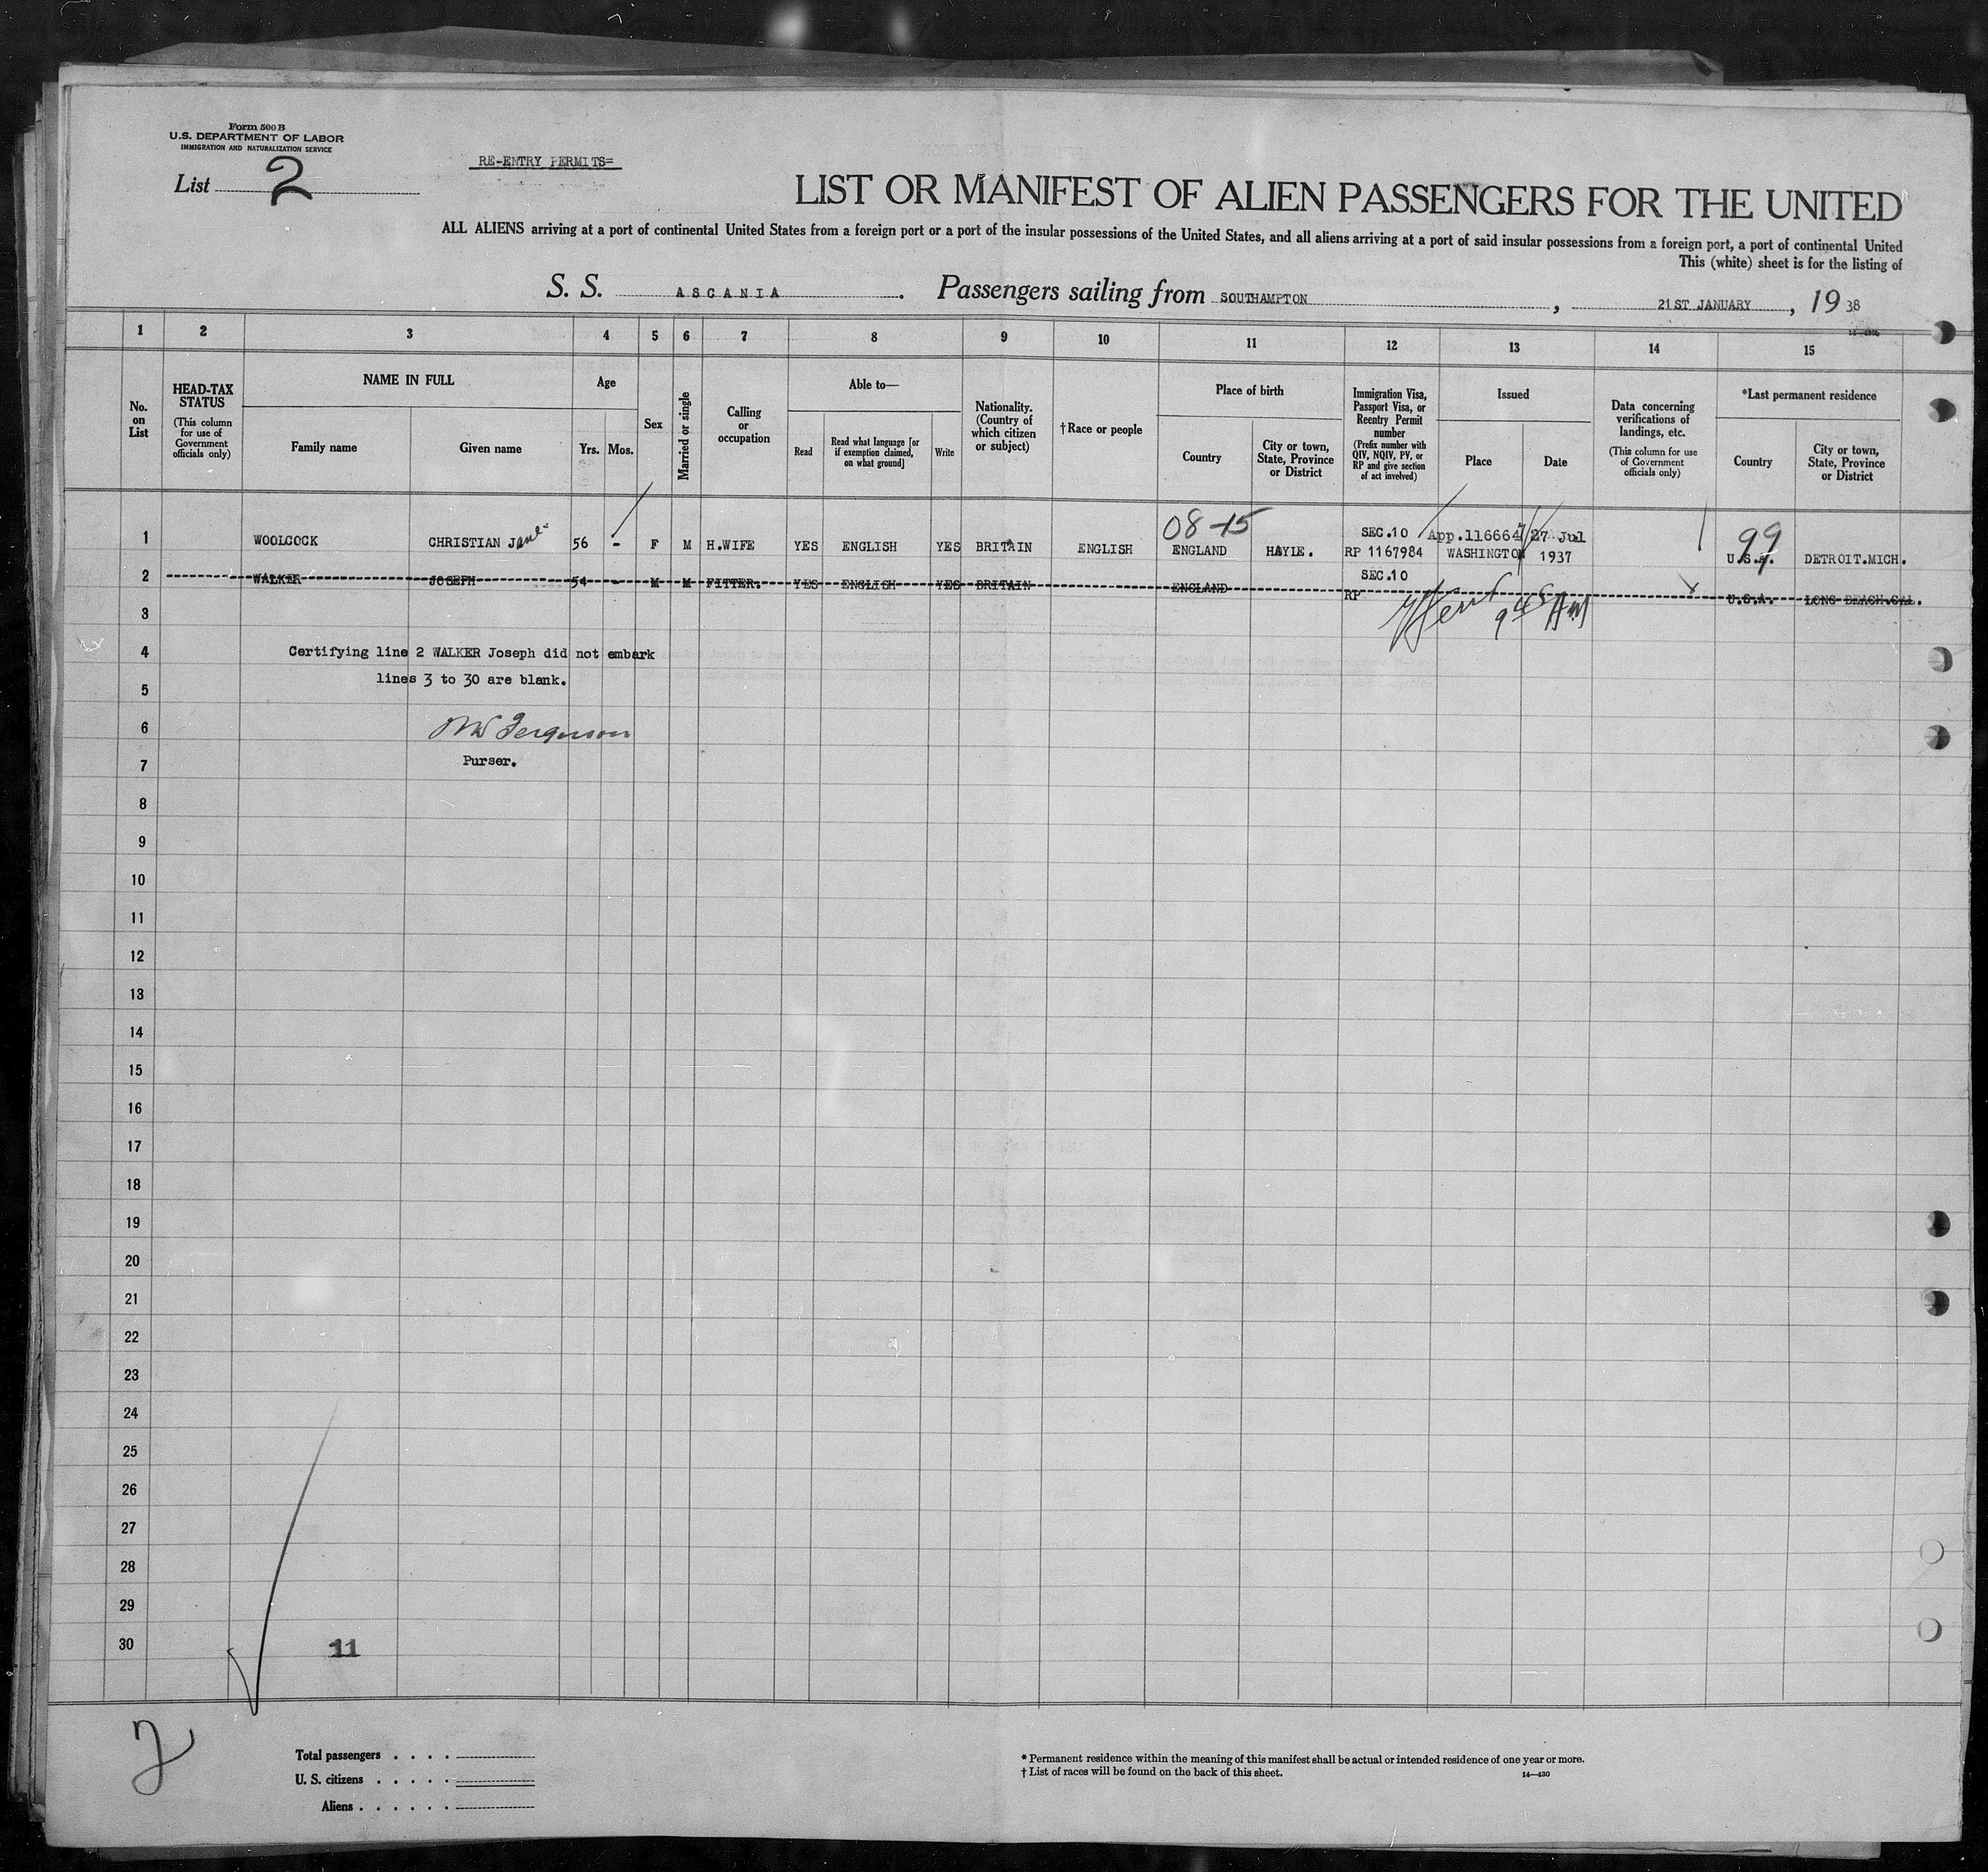 Form 500 B
U.S. DEPARTMENT OF LABOR
IMMIGRATION AND NATURALIZATION SERVICE
List 2
RE-ENTRY PERMITS=
LIST OR MANIFEST OF ALIEN PASSENGERS FOR THE UNITED
ALL ALIENS arriving at a port of continental United States from a foreign port or a port of the insular possessions of the United States, and all aliens arriving at a port of said insular possessions from a foreign port, a port of continental United
This (white) sheet is for the listing of
S. S. ASCANIA. Passengers sailing from SOUTHAMPTON, 21ST JANUARY, 1938
14—430b
1 2 3 4 5 6 7 8 9 10 11 12 13 14 15
No. on List
HEAD-TAX STATUS
(This column for use of Government officials only)
NAME IN FULL
Family name
Given name
Age
Yrs. Mos.
Sex
Married or single
Calling or occupation
Able to—
Read
Read what language [or if exemption claimed, on what ground]
Write
Nationality. (Country of which citizen or subject)
†Race or people
Place of birth
Country
City or town, State, Province or District
Immigration Visa, Passport Visa, or Reentry Permit number
(Prefix number with QIV, NQIV, PV, or RP and give section of act involved)
Issued
Place
Date
Data concerning verifications of landings, etc.
(This column for use of Government officials only)
*Last permanent residence
Country
City or town, State, Province or District
08-15
99
SEC.10 App.116664 27 Jul
1 WOOLCOCK CHRISTIAN Jane 56 - F M H.WIFE YES ENGLISH YES BRITAIN ENGLISH ENGLAND HAYLE. RP 1167984 WASHINGTON 1937 U.S.A. DETROIT.MICH.
SEC.10
2 WALKER JOSEPH 54 - M M FITTER. YES ENGLISH YES BRITAIN ENGLAND RP U.S.A. LONG BEACH.CAL.
3
4 Certifying line 2 WALKER Joseph did not embark
lines 3 to 30 are blank.
5
6 Ferguson
7 Purser.
8
9
10
11
12
13
14
15
16
17
18
19
20
21
22
23
24
25
26
27
28
29
30 11
2
Total passengers . . . .
U. S. citizens . . . . .
Aliens . . . . . .
* Permanent residence within the meaning of this manifest shall be actual or intended residence of one year or more.
† List of races will be found on the back of this sheet.
14—430